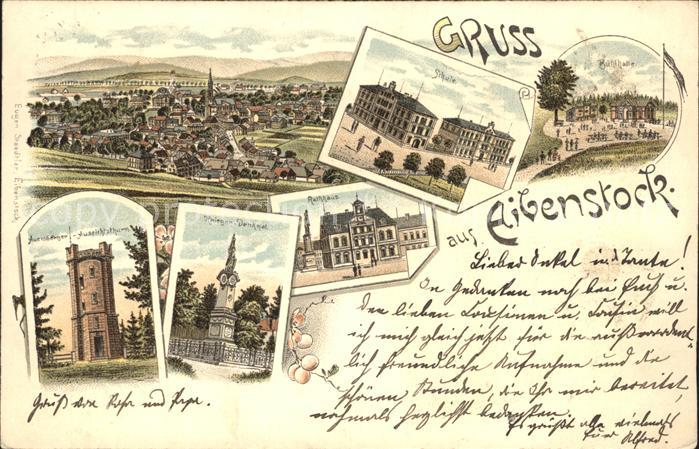 GRUSS
aus Eibenstock.
Schule
Bühlhalle
Auersberger-
Aussichtsthurm
Krieger-Denkmal
Rathhaus
Eugen Staedtler, Eibenstock
Lieber Onkel und Tante!
In Gedanken noch bei Euch u.
den lieben Cousinen u. Cousin will
ich mich gleich jetzt für die außerordent-
lich freundliche Aufnahme und die
schönen Stunden, die Ihr mir bereitet,
nochmals herzlichst bedanken.
Es grüßt alle vielmals
Euer Alfred.
Gruß von und Papa.